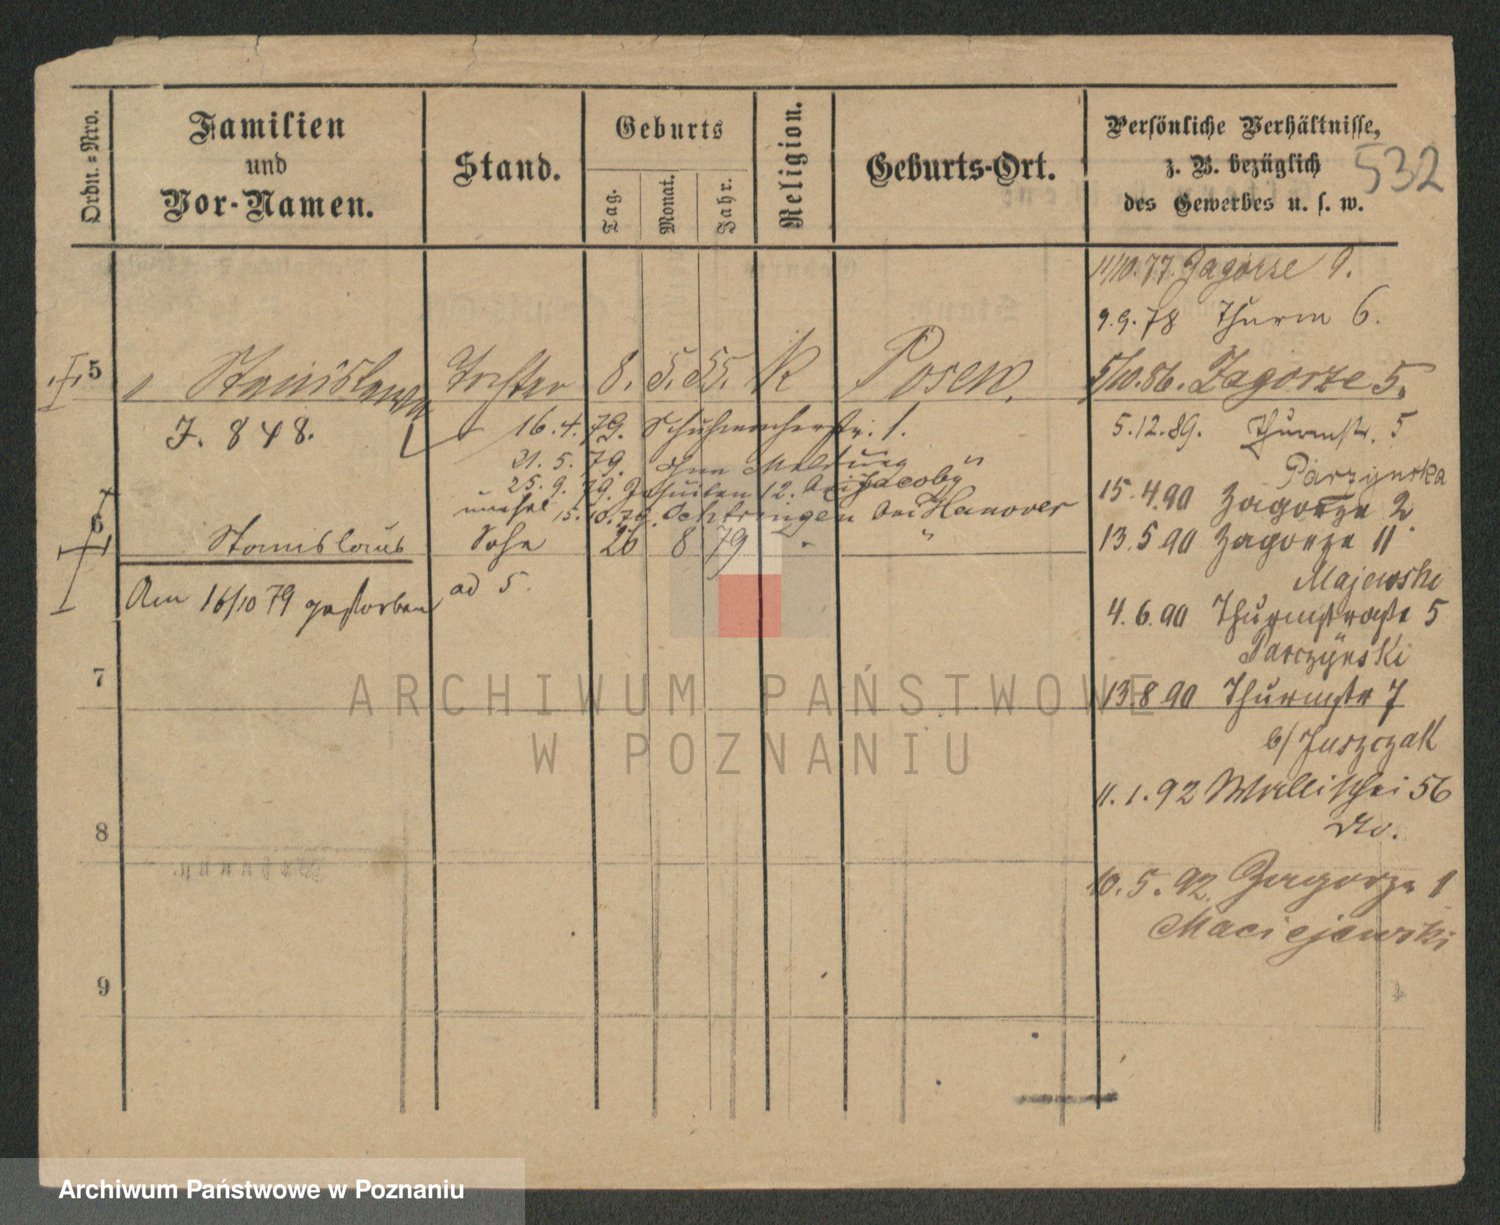 Ordn.=Nro.
Familien
und
Vor-Namen.
Stand.
Geburts
Tag.
Monat.
Jahr.
Religion.
Geburts-Ort.
Persönliche Verhältnisse,
z. B. bezüglich
des Gewerbes u. s. w.
532
11/10. 77. Zagorze 9.
9. 9. 78 Thurm 6.
5 Stanislawa Tochter 8. 5. 55. K Posen. 5/10. 86. Zagorze 5.
J. 848.
16. 4. 79. Schuhmacherstr. 1.
5. 12. 89. Thurmstr. 5
21. 5. 79. ohne Meldung "
Parzynska
25. 9. 79. Jesuiten 12. bei Jacoby
15. 4. 90 Zagorze 2
unehel 15. 10. 79. bei Hanover
6 Stanislaus Sohn 26 8 79 " "
13. 5 90 Zagorze 11
Majewski
Am 16/10 79 gestorben ad 5.
4. 6. 90 Thurmstraße 5
Parczynski
7
13. 8 90 Thurmstr 7
b/ Juszczak
11. 1. 92 Wallischei 56
8
10. 5. 92. Zagorze 1
Maciejewski
9
ARCHIWUM PAŃSTWOWE
W POZNANIU
Archiwum Państwowe w Poznaniu